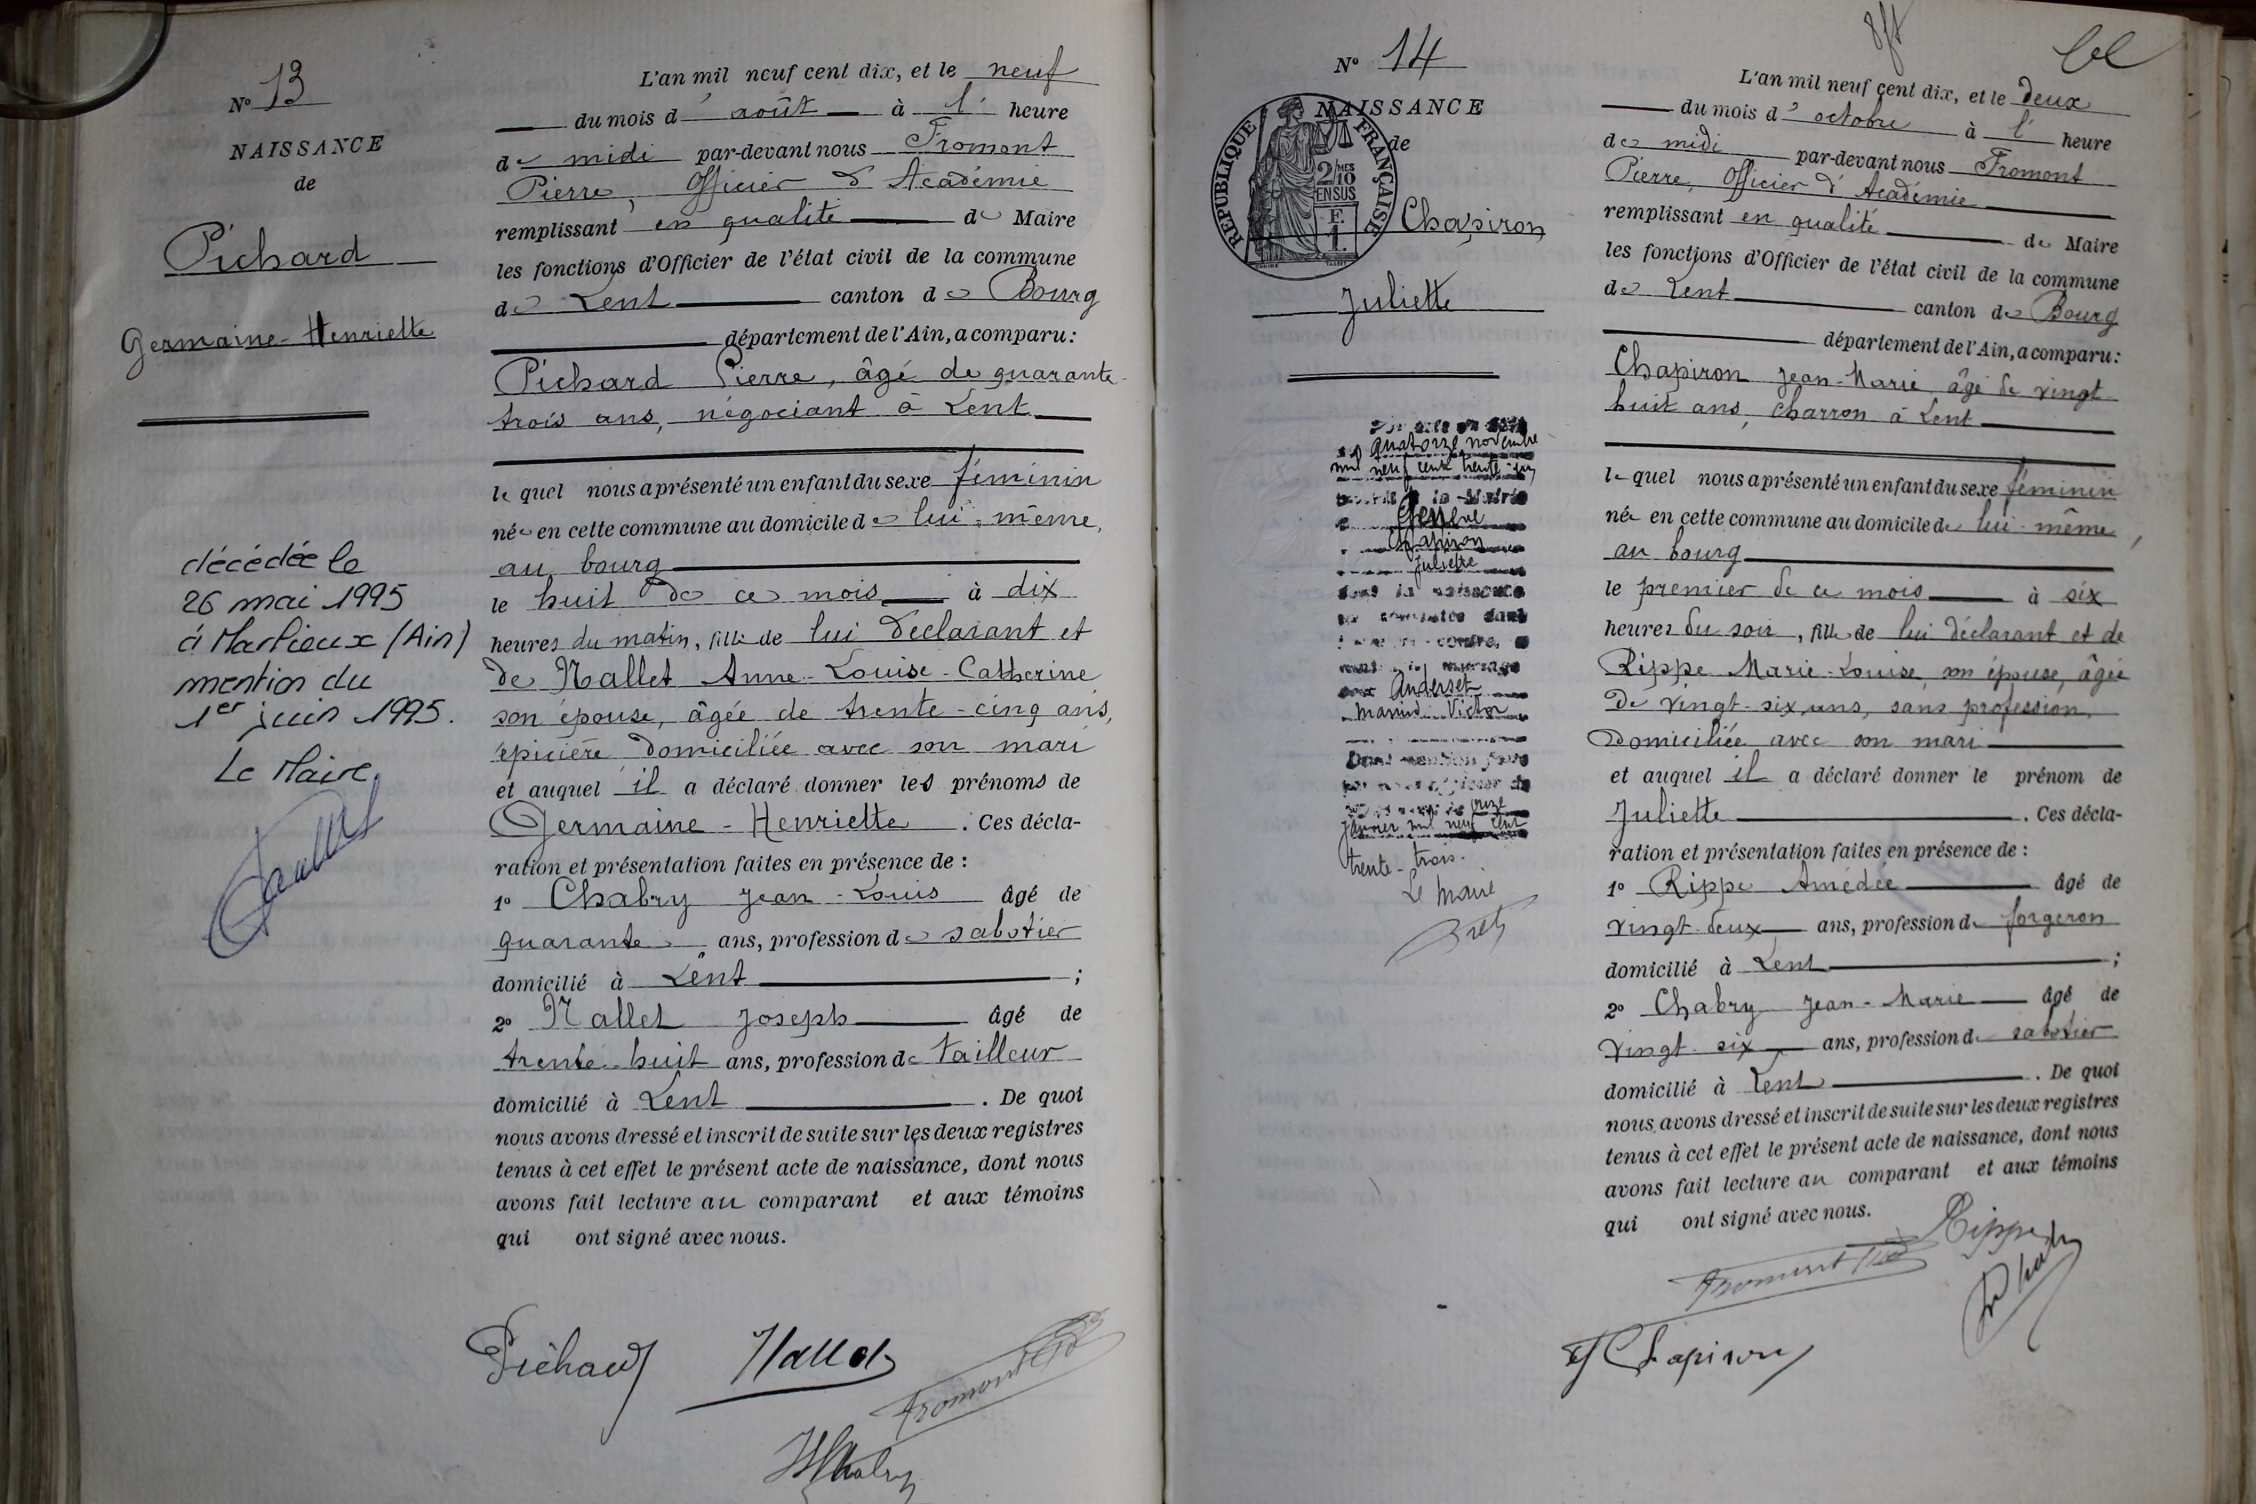 N° 13
NAISSANCE
de
Pichard
Germaine-Henriette
décédée le
26 mai 1995
à Marlieux (Ain)
mention du
1er juin 1995.
Le Maire
L'an mil neuf cent dix, et le neuf
du mois d'août à l' heure
de midi par-devant nous Fromont
Pierre, Officier d'Académie
remplissant en qualité de Maire
les fonctions d'Officier de l'état civil de la commune
de Lent canton de Bourg
département de l'Ain, a comparu:
Pichard Pierre, âgé de quarante-
trois ans, négociant à Lent
lequel nous a présenté un enfant du sexe féminin
née en cette commune au domicile de lui-même,
au bourg
le huit de ce mois à dix
heures du matin, fille de lui déclarant et
de Nallet Anne-Louise-Catherine
son épouse, âgée de trente-cinq ans,
épicière domiciliée avec son mari
et auquel il a déclaré donner les prénoms de
Germaine-Henriette. Ces décla-
ration et présentation faites en présence de :
1° Chabry Jean-Louis âgé de
quarante ans, profession de sabotier
domicilié à Lent ;
2° Nallet Joseph âgé de
trente-huit ans, profession de tailleur
domicilié à Lent. De quoi
nous avons dressé et inscrit de suite sur les deux registres
tenus à cet effet le présent acte de naissance, dont nous
avons fait lecture au comparant et aux témoins
qui ont signé avec nous.
Pichard Nallet
Fromont
Chabry
N° 14
NAISSANCE
de
REPUBLIQUE FRANÇAISE
2/10 MES
EN SUS
F.
1.
Chapiron
Juliette
quatorze novembre
mil neuf cent trente-un
la Mairie
Genève
Chapiron
Juliette
dont la naissance
est constatée dans
l'acte ci-contre, a
mariage
avec Anderset
Victor
Dont mention faite
par nous officier de
onze
janvier mil neuf cent
trente-trois.
Le Maire
L'an mil neuf cent dix, et le deux
du mois d'octobre à l' heure
de midi par-devant nous Fromont
Pierre, Officier d'Académie
remplissant en qualité de Maire
les fonctions d'Officier de l'état civil de la commune
de Lent canton de Bourg
département de l'Ain, a comparu:
Chapiron Jean-Marie âgé de vingt-
huit ans, charron à Lent
lequel nous a présenté un enfant du sexe féminin
née en cette commune au domicile de lui-même,
au bourg
le premier de ce mois à six
heures du soir, fille de lui déclarant et de
Rippe Marie-Louise, son épouse, âgée
de vingt-six ans, sans profession,
domiciliée avec son mari
et auquel il a déclaré donner le prénom de
Juliette. Ces décla-
ration et présentation faites en présence de :
1° Rippe Amédée âgé de
vingt-deux ans, profession de forgeron
domicilié à Lent ;
2° Chabry Jean-Marie âgé de
vingt-six ans, profession de sabotier
domicilié à Lent. De quoi
nous avons dressé et inscrit de suite sur les deux registres
tenus à cet effet le présent acte de naissance, dont nous
avons fait lecture au comparant et aux témoins
qui ont signé avec nous.
Rippe
Fromont
Chapiron